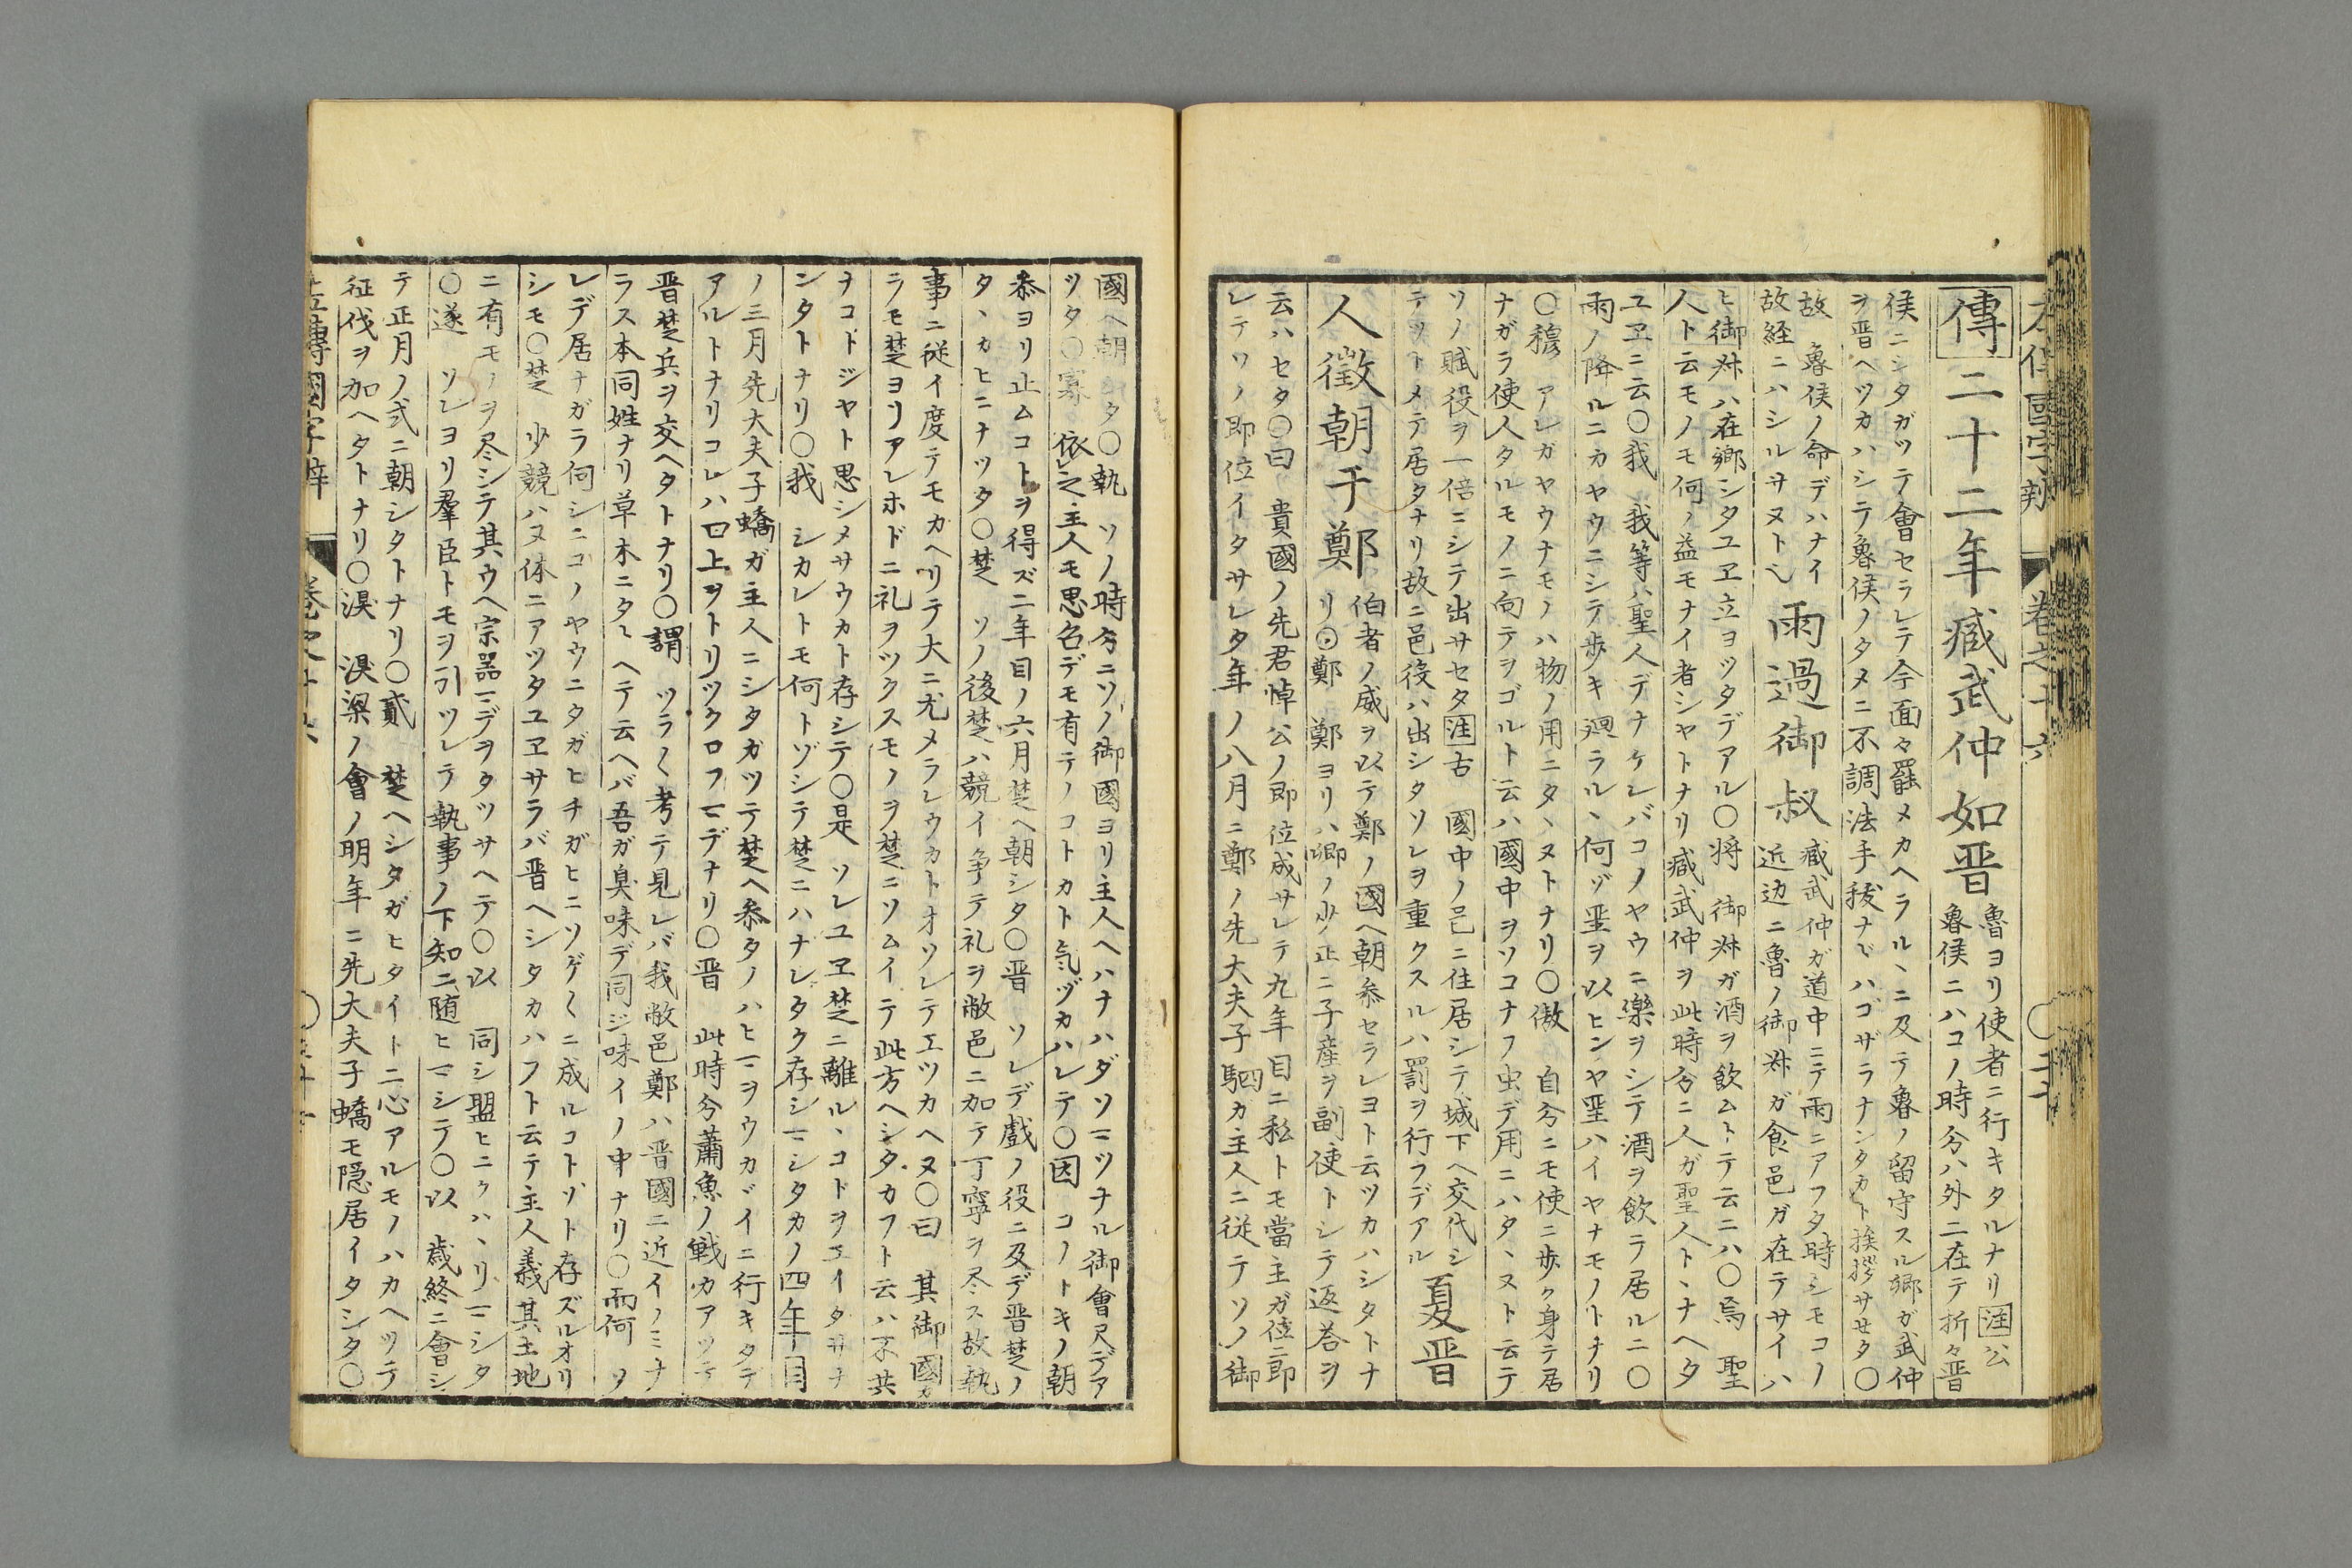 傳二十二年臧武仲如晋
魯ヨリ使者ニ行キタルナリ注公
魯侯ニハコノ時分ハ外ニ在テ折々晋
侯ニシタガツテ會セラレテ今面々罷メカヘラルヽニ及テ魯ノ留守スル郷ガ武仲
ヲ晋ヘツカハシテ魯侯ノタメニ不調法手抜ナドハゴザラナンタカト挨拶サセタ〇
故 魯侯ノ命デハナイ
故経ニハシルサヌト也
雨過御叔
臧武仲ガ道中ニテ雨ニアフタ時シモコノ
近辺ニ魯ノ御叔ガ食邑ガ在テサイハ
ヒ御叔ハ在郷シタユヱ立ヨツタデアル〇将 御叔ガ酒ヲ飲ムトテ云ニハ〇焉 聖
人ト云モノモ何ノ益モナイ者シヤトナリ臧武仲ヲ此時分ニ人ガ聖人トヽナヘタ
ユヱニ云〇我 我等ハ聖人デナケレバコノヤウニ樂ヲシテ酒ヲ飲テ居ルニ〇
雨ノ降ルニカヤウニシテ歩キ廻ラルヽ何ゾ聖ヲ以ヒンヤ聖ハイヤナモノトナリ
〇穆 アレガヤウナモノハ物ノ用ニタヽヌトナリ〇傲 自分ニモ使ニ歩ク身テ居
ナガラ使人タルモノニ向テヲゴルト云ハ國中ヲソコナフ虫デ用ニハタヽヌト云テ
ソノ賦役ヲ一倍ニシテ出サセタ注古 國中ノ邑ニ住居シテ城下ヘ交代シ
テツトメテ居タナリ故ニ邑役ハ出シタソレヲ重クスルハ罰ヲ行ラデアル
夏晋
人徴朝于鄭
伯者ノ威ヲ以テ鄭ノ國ヘ朝参セラレヨト云ツカハシタトナ
リ〇鄭 鄭ヨリハ卿ノ少正ニ子産ヲ副使トシテ返答ヲ
云ハセタ〇曰 貴國ノ先君悼公ノ即位成サレテ九年目ニ私トモ當主ガ位ニ即
レテソノ即位イタサレタ年ノ八月ニ鄭ノ先大夫子駟カ主人ニ従テソノ御
國ヘ朝シタ〇執 ソノ時分ニソノ御國ヨリ主人ヘハナハダソマツナル御會尺デア
ツタ〇寡 依之主人モ思召デモ有テノコトカト気ヅカハレテ〇因 コノトキノ朝
参ヨリ止ムコトヲ得ズ二年目ノ六月楚ヘ朝シタ〇晋 ソレデ戲ノ役ニ及デ晋楚ノ
タヽカヒニナツタ〇楚 ソノ後楚ハ競イ争テ礼ヲ敝邑ニ加テ丁寧ヲ尽ス故執
事ニ従イ度テモカヘリテ大ニ尤メラレウカトオソレテエツカヘヌ〇曰 其御國カ
ラモ楚ヨリアレホドニ礼ヲツクスモノヲ楚ニソムイテ此方ヘシタカフト云ハ不共
ナコトジヤト思シメサウカト存シテ〇是 ソレユヱ楚ニ離ルヽコトヲエイタサナ
ンタトナリ〇我 シカレトモ何トゾシテ楚ニハナレタク存シマシタカノ四年目
ノ三月先大夫子蟜ガ主人ニシタガツテ楚ヘ参タノハヒマヲウカヾイニ行キタデ
アルトナリコレハ口上ヲトリツクロフマデナリ〇晋 此時分蕭魚ノ戦カアツテ
晋楚兵ヲ交ヘタトナリ〇謂 ツラ〱考テ見レバ我敝邑鄭ハ晋國ニ近イノミナ
ラス本同姓ナリ草木ニタトヘテ云ヘバ吾ガ臭味デ同ジ味イノ中ナリ〇而何 ソ
レデ居ナガラ何シニコノヤウニタガヒチガヒニソゲ〱ニ成ルコトゾト存ズルオリ
シモ〇楚 少競ハヌ体ニアツタユヱサラバ晋ヘシタカハフト云テ主人義其土地
ニ有モノヲ尽シテ其ウヘ宗器マデヲタツサヘテ〇以 同シ盟ヒニクハヽリマシタ
〇遂 ソレヨリ羣臣トモヲ引ツレテ執事ノ下知ニ随ヒマシテ〇以 歳終ニ會シ
テ正月ノ式ニ朝シタトナリ〇貳 楚ヘシタガヒタイト二心アルモノハカヘツテ
征伐ヲ加ヘタトナリ〇湨 湨梁ノ會ノ明年ニ先大夫子蟜モ隠居イタシタ〇